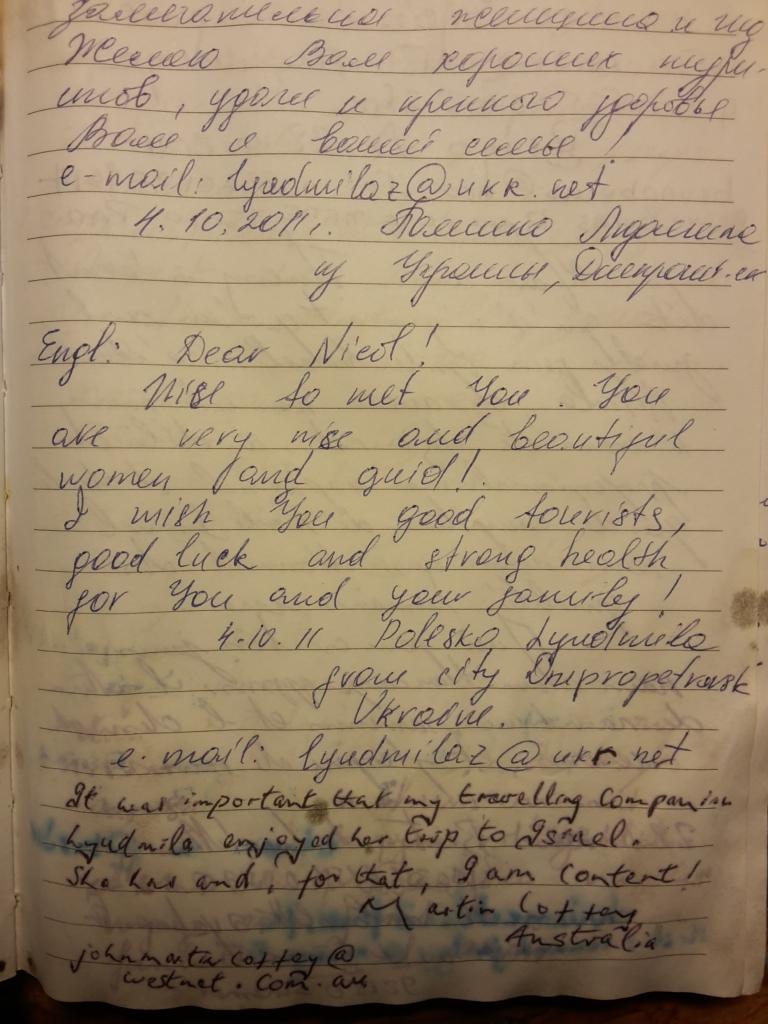 замечательная женщина и гид
Желаю Вам хороших тури-
стов, удачи и крепкого здоровья
Вам и вашей семье!
e-mail: lyudmilaz@ukr.net
4.10.2011г. Людмила
из Украины,
Engl: Dear Nicol!
Nise to met You. You
are very nise and beautiful
women and guid!
I wish You good tourists,
good luck and strong health
for You and your family!
4.10.11 Polesko Lyudmila
from city Dnepropetrovsk
Ukraine.
e-mail: lyudmilaz@ukr.net
It was important that my travelling companion
Lyudmila enjoyed her trip to Israel.
She has and, for that, I am content!
Martin Coffey
Australia
johnmartincoffey@
westnet.com.au